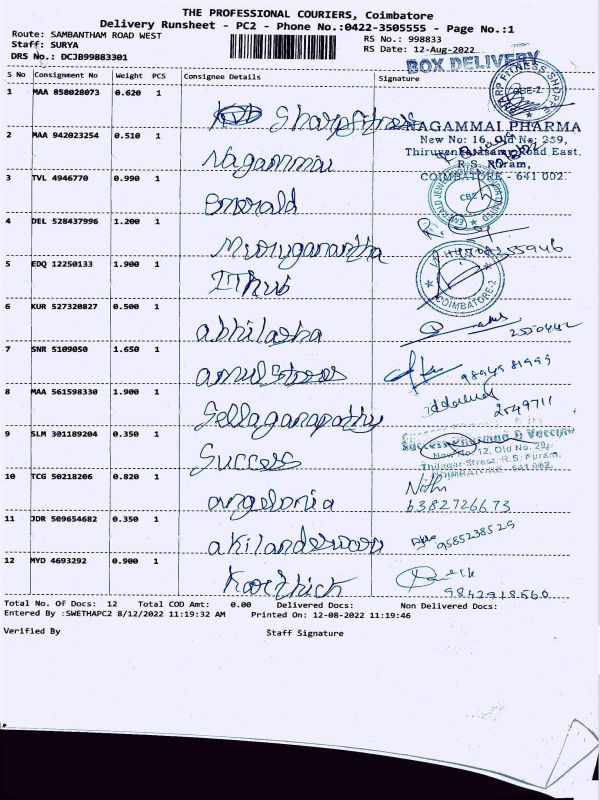 THE PROFESSIONAL COURIERS, Coimbatore
Delivery Runsheet - PC2 - Phone No.:0422-3505555 - Page No.:1
Route: SAMBANTHAM ROAD WEST RS No.: 998833
Staff: SURYA RS Date: 12-Aug-2022
DRS No.: DCJB99883301
BOX DELIVERY
S No Consignment No Weight PCS Consignee Details Signature
1 MAA 858028073 0.620 1 Sharpfitness
NAGAMMAI PHARMA
New No: 16, Old No: 259,
2 MAA 942023254 0.510 1 Nagammai
Road East.
R.S. Puram,
COIMBATORE - 641 002.
3 TVL 4946770 0.990 1 Emerald
CBE
4 DEL 528437996 1.200 1 Muruganantha
5 EDQ 12250133 1.900 1 IThub
COIMBATORE-2
6 KUR 527320827 0.500 1 abhilasha
2550442
7 SNR 5109050 1.650 1 amul Stores
8 MAA 561598330 1.900 1 Sellaganapathy
2549711
9 SLM 301189204 0.350 1 Success
Success Pharma & Vaccine
New No. 12, Old No. 29,
Thilagar Street, R.S. Puram,
COIMBATORE - 641 002.
10 TCG 50218206 0.820 1 angelonia Nithi
6382726673
11 JDR 509654682 0.350 1 akilandeswari 9585238529
12 MYD 4693292 0.900 1 Karthick
9842918560
Total No. Of Docs: 12 Total COD Amt: 0.00 Delivered Docs: Non Delivered Docs:
Entered By :SWETHAPC2 8/12/2022 11:19:32 AM Printed On: 12-08-2022 11:19:46
Verified By Staff Signature